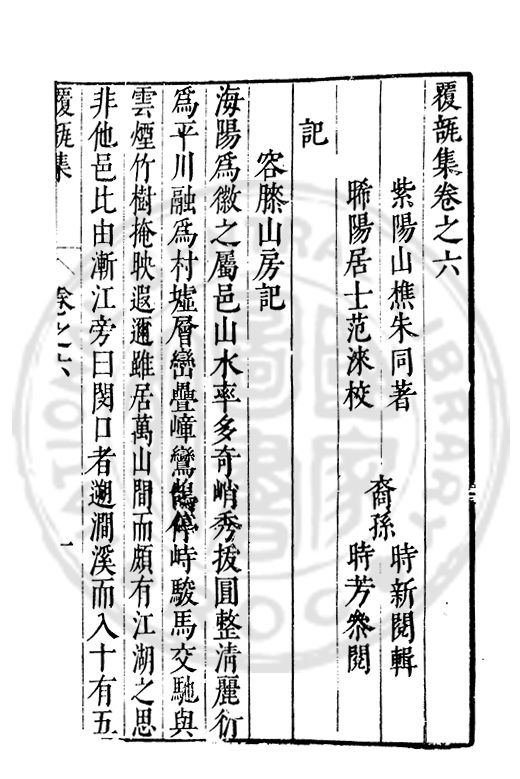 覆瓿集卷之六
紫陽山樵朱同著
晞陽居士范淶校
裔孫
時新閱輯
時芳叅閱
記
容膝山房記
海陽爲徽之屬邑山水率多奇峭秀拔圓整清麗衍
爲平川融爲村墟層巒疊嶂鸞鵠停峙駿馬交馳與
雲煙竹樹掩映遐邇雖居萬山間而頗有江湖之思
非他邑比由漸江旁曰閔口者遡澗溪而入十有五
覆瓿集
卷之六
一